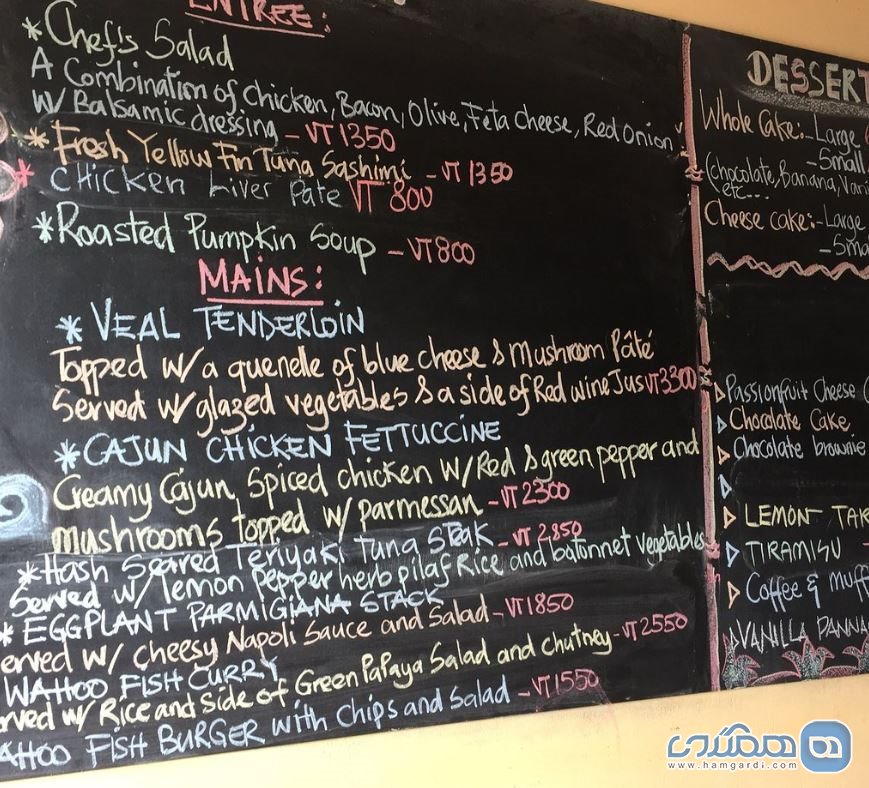 ENTREE:
*Chef's Salad
A Combination of Chicken, Bacon, Olive, Feta Cheese, Red Onion
W/ Balsamic dressing - VT 1350
*Fresh Yellow Fin Tuna Sashimi - VT 1350
* CHicken Liver Pate VT 800
*Roasted Pumpkin Soup - VT 800
MAINS:
* VEAL TENDERLOIN
Topped w/ a quenelle of blue cheese & Mushroom Pâté
Served w/ glazed vegetables & a side of Red wine Jus VT 3300
*CAJUN CHICKEN FETTUCCINE
Creamy Cajun, Spiced chicken w/ Red & green pepper and
mushrooms topped w/ parmessan - VT 2300
*Hash Seared Teriyaki Tuna Steak - VT 2,850
Served w/ lemon pepper herb pilaf Rice and batonnet vegetables
* EGGPLANT PARMIGIANA STACK
erved w/ cheesy Napoli Sauce and Salad - VT 1850
WAHOO FISH CURRY
rved w/ Rice and side of Green Papaya Salad and chutney - VT 2550
AHOO FISH BURGER with Chips and Salad - VT 1550
DESSERT
Whole Cake:- Large
- Small
(chocolate, Banana, Vani
etc...
Cheese cake:- Large
- Smal
Passionfruit Cheese C
Chocolate Cake
Chocolate brownie
LEMON TAR
TIRAMISU -
Coffee & Muff
VANILLA PANNA
همگردی
www.hamgardi.com